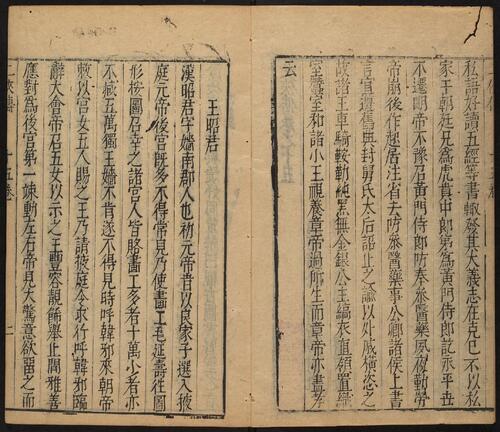 私語好讀五經等書輒發其大義志在克己不以私
家干朝廷兄為虎賁中郎弟為黃門侍郎訖永平世
不遷明帝不豫召黃門侍郎防奉參醫藥夙夜勤勞
帝崩後作起居注省去防參醫藥事公卿諸侯上書
言宜遵舊典封舅氏太后詔止之諭以外戚橫恣之
故諸王車騎鞍勒純黑無金銀公主縞衣直領置織
室蠶室和諸小王視養章帝過所生而章帝亦盡孝
云
王昭君
漢昭君字嬙南郡人也初元帝昔以良家子選入掖
庭元帝後宮既多不得常見乃使畫工毛延壽徃圖
形按圖召幸之諸宮人皆賂畫工多者十萬少者亦
不減五萬獨王嬙不肯遂不得見時呼韓邪來朝帝
敕以宮女五人賜之王乃請掖庭令求行呼韓邪臨
辭大會帝召五女以示之王豐容靚飾舉止閒雅善
應對為後宮第一竦動左右帝見大驚意欲留之而
十五卷
二